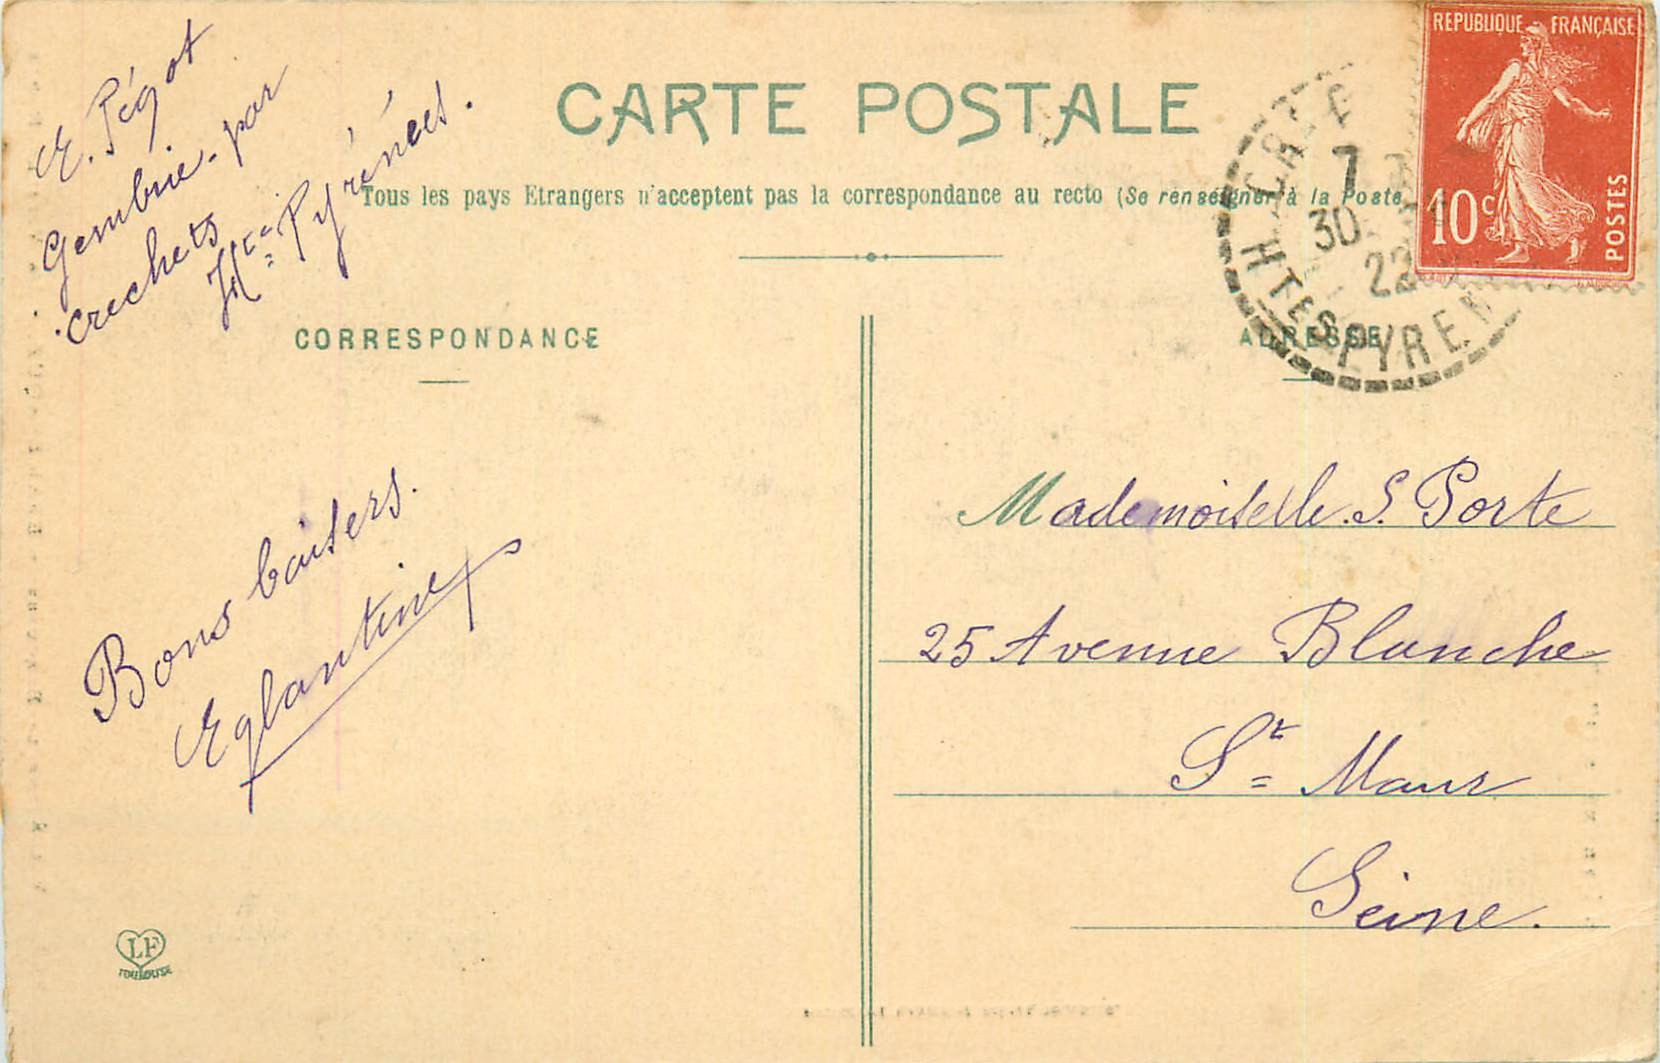 E. Pégot
Gembrie - par
crechets
Htes = Pyrénées.
CARTE POSTALE
Tous les pays Etrangers n'acceptent pas la correspondance au recto (Se renseigner à la Poste
REPUBLIQUE FRANÇAISE
10c
POSTES
7
30
22
HTES PYREN
CORRESPONDANCE
ADRESSE
Bons baisers.
Eglantine
Mademoiselle. S. Porte
25 Avenue Blanche
St = Maur
Seine.
LF
TOULOUSE